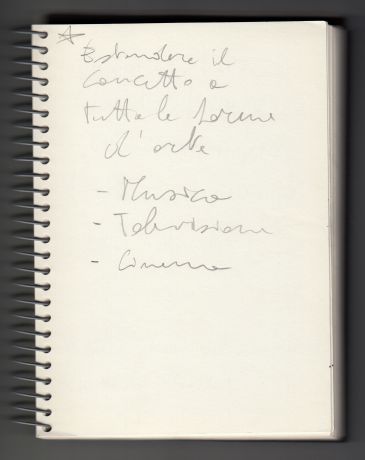 Estendere il
concetto a
tutte le forme
d'arte
- Musica
- Televisione
- Cinema